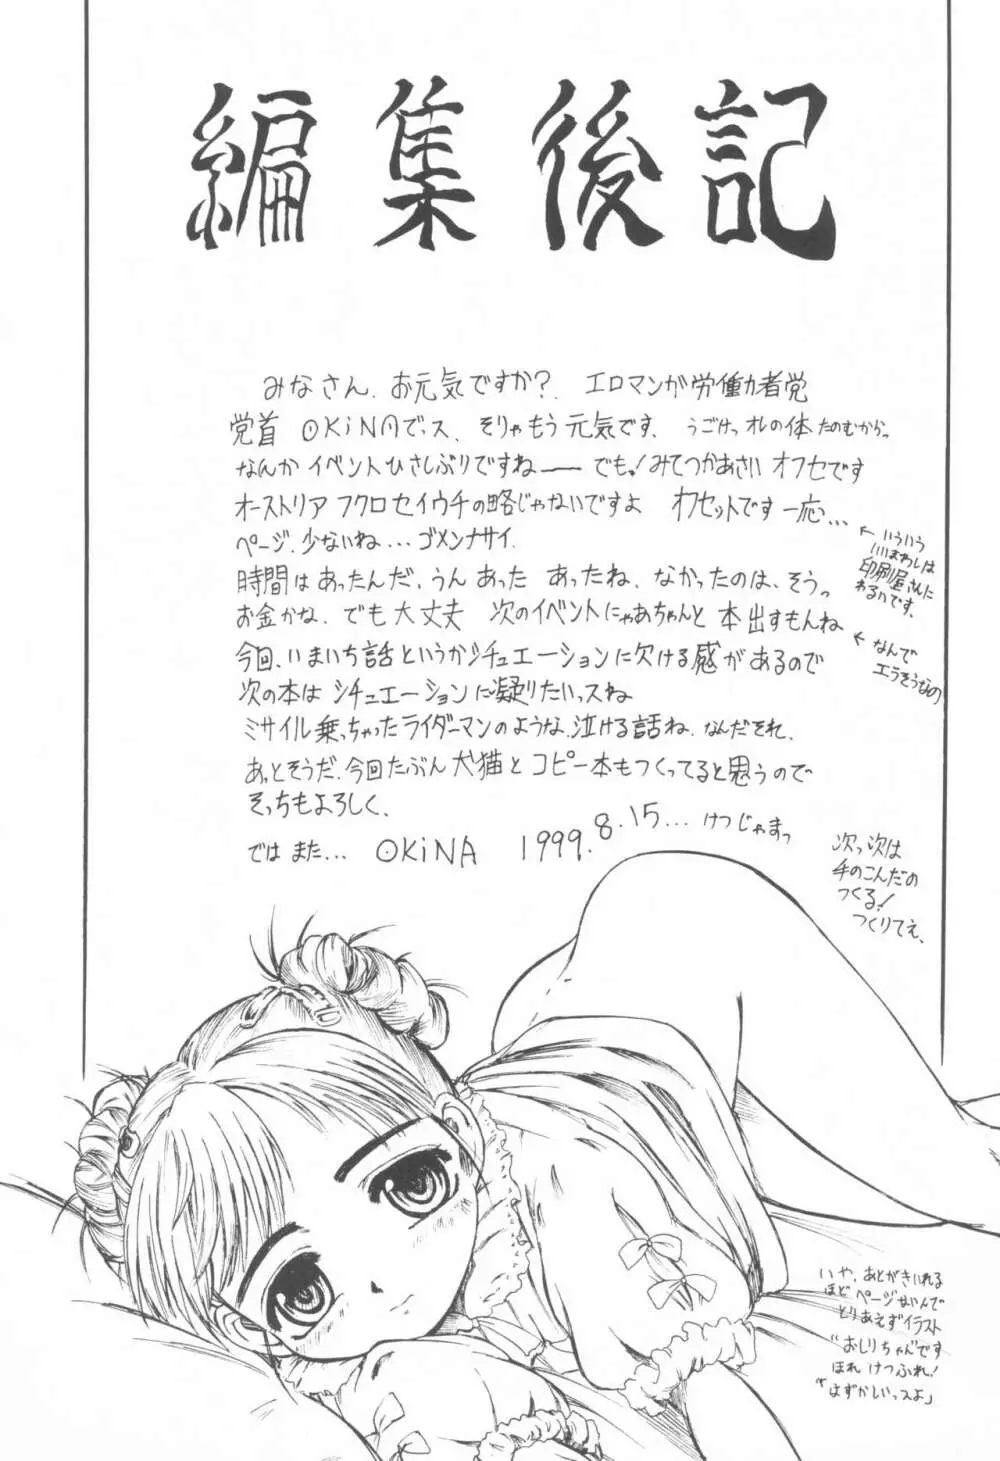 編集後記
みなさん、お元気ですか? エロマンガ労働者党
党首 OKiNAでっス、そりゃもう元気です、うごけっオレの体たのむからっ
なんかイベントひさしぶりですね―― でもっ!みてつかあさい オフセです
オーストリア フクロセイウチの略じゃないですよ オフセットです一応...
ページ、少ないね...ゴメンナサイ、
←いういう
いいまわしは
印刷屋さんに
わるいです、
時間はあったんだ、うんあった あったね、なかったのは、そうっ
お金かな、でも大丈夫 次のイベントにゃあちゃんと本出すもんね
←なんで
エラそうなの
今回、いまいち話というかシチュエーションに欠ける感があるので
次の本は シチュエーションに凝りたいっスね
ミサイル乗っちゃったライダーマンのような、泣ける話ね、なんだそれ、
あっとそうだ、今回たぶん犬猫とコピー本もつくってると思うので
そっちもよろしく、
では また... OKiNA 1999.8.15...けつじゃまっ
次っ次は
手のこんだの
つくる!
つくりてえ、
いや、あとがきいれる
ほどページないんで
とりあえずイラスト
"おしりちゃん"です
ほれ けつふれ!
「はずかしいっスよ」